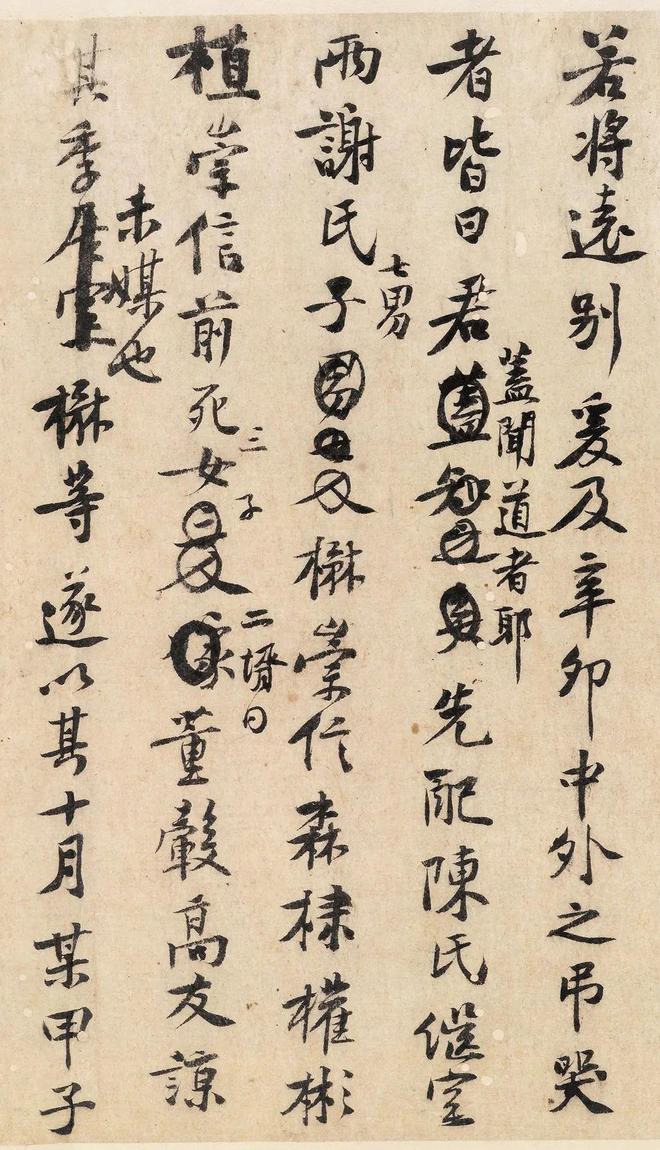 若将遠别爰及辛卯中外之吊哭
蓋聞道者耶
者皆曰君先配陳氏繼室
七男
兩謝氏子楙崇信森棣權彬
三子
二壻曰
植崇信前死女董轂髙友諒
未媒也
其季楙等遂以其十月某甲子